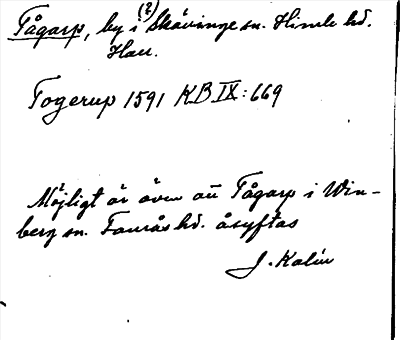 Tågarp, by i (?) Skävinge sn. Himle hd.
Hall.
Togerup 1591 KB IX: 669
Möjligt är även att Tågarp i Vin-
berg sn. Faurås hd. åsyftas
J. Kalin